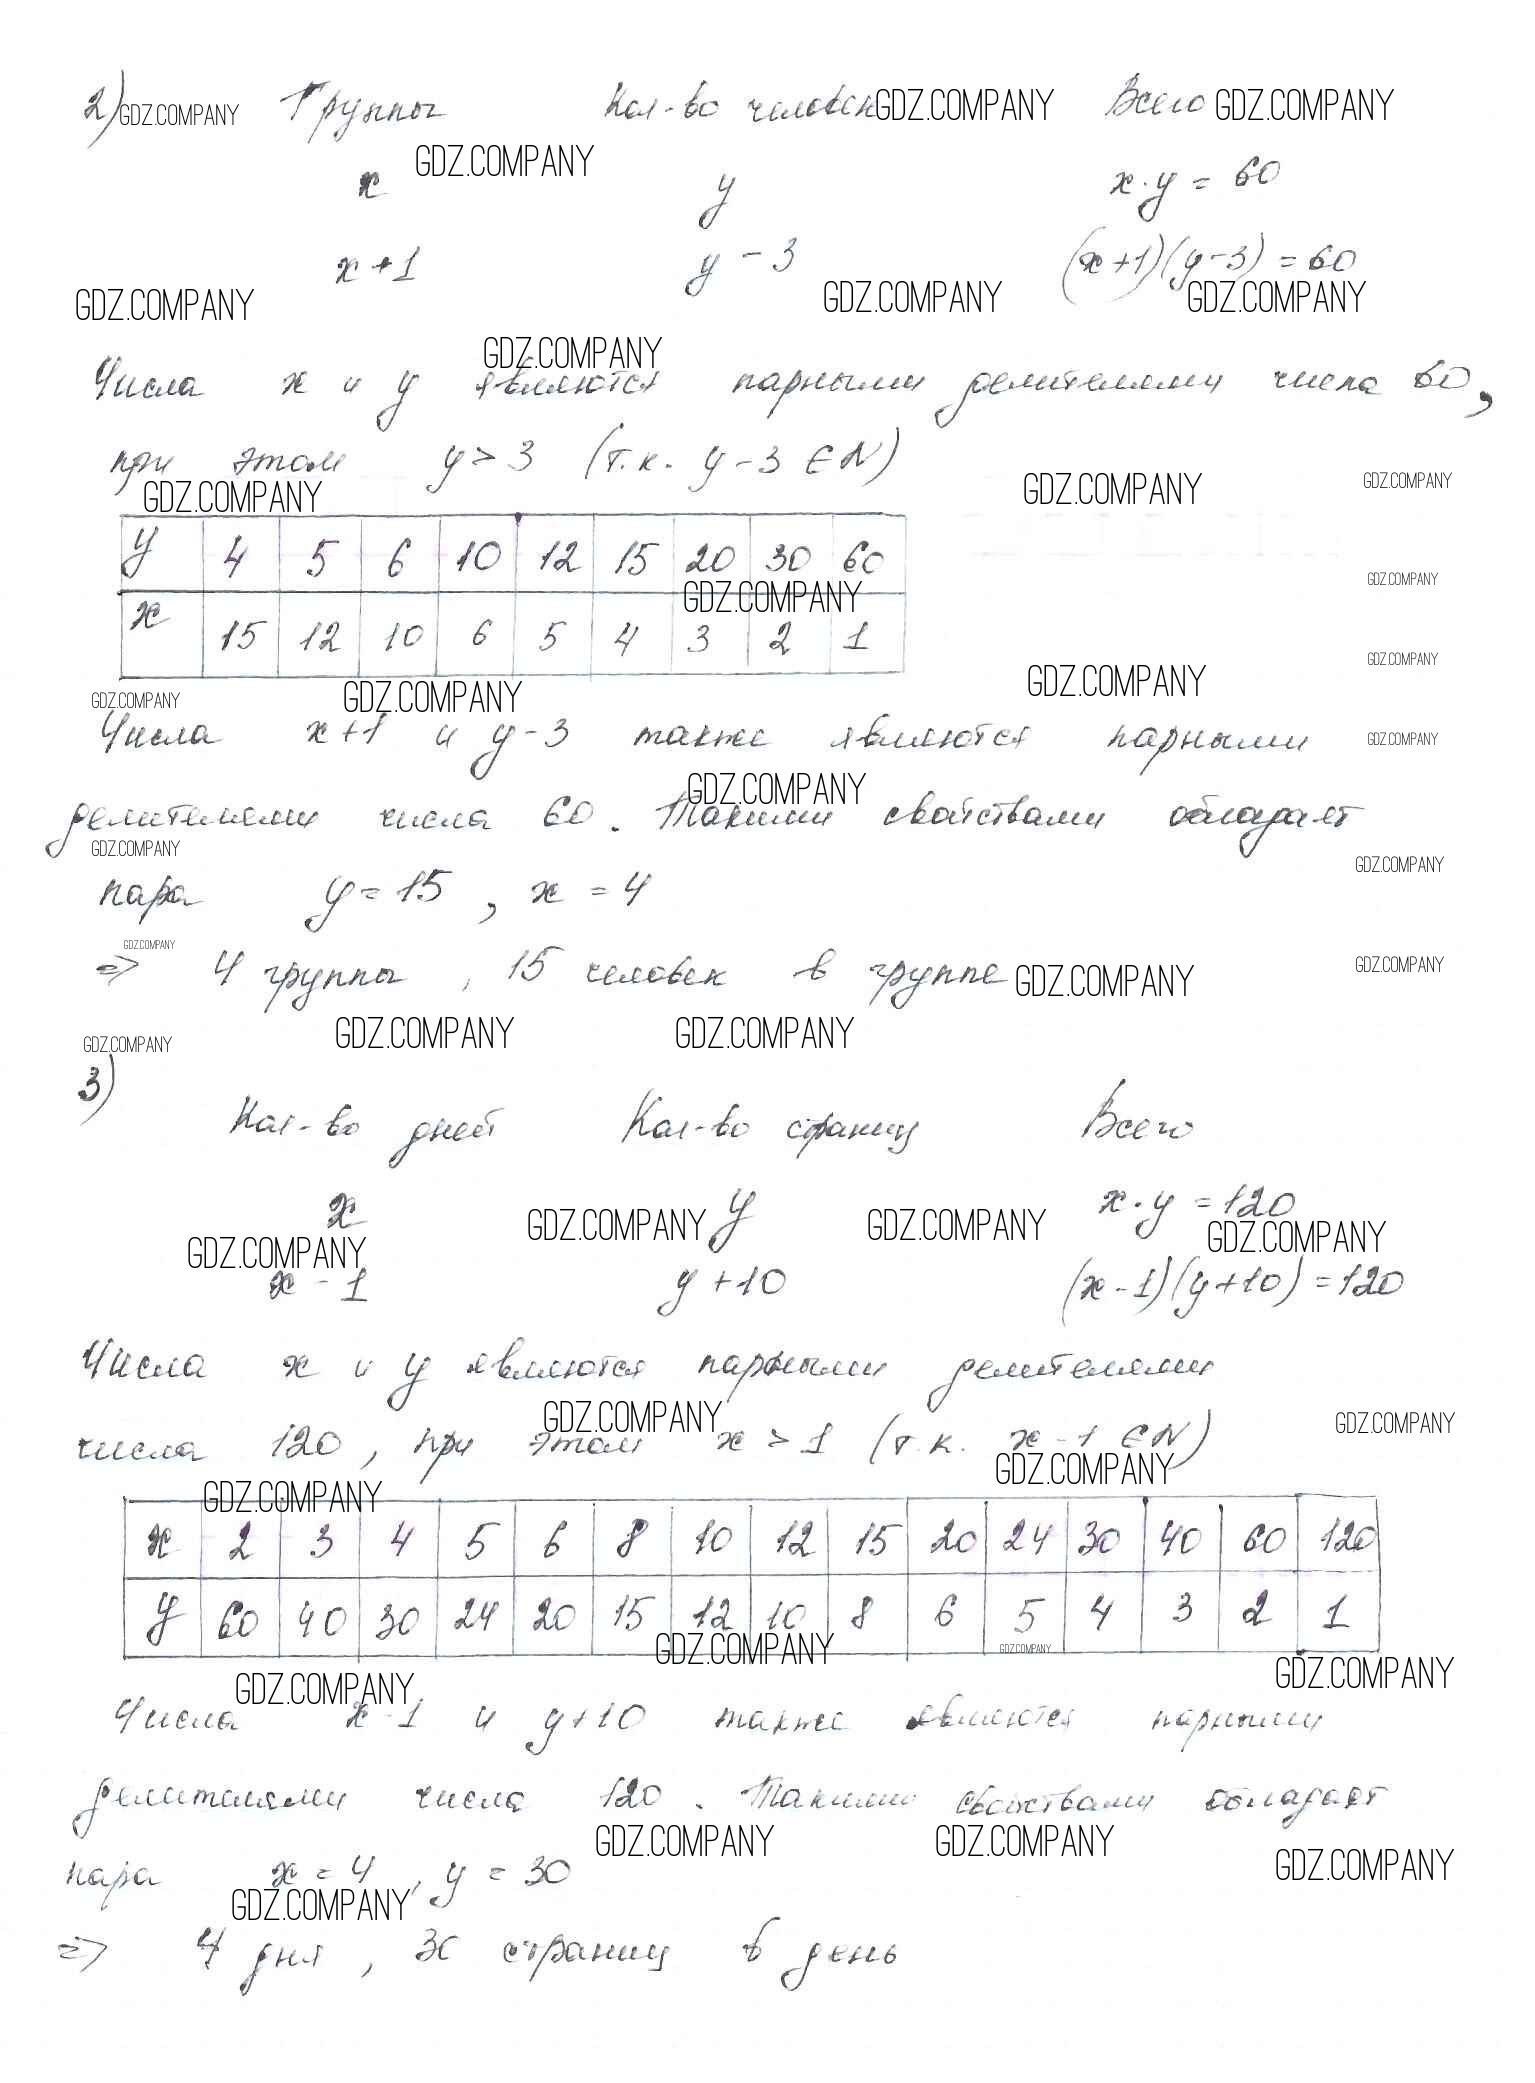 2) GDZ.COMPANY Группы Кол-во человек GDZ.COMPANY Всего GDZ.COMPANY
GDZ.COMPANY
x y x·y = 60
x+1 y-3 (x+1)(y-3) = 60
GDZ.COMPANY GDZ.COMPANY GDZ.COMPANY
GDZ.COMPANY
Числа x и y являются парными делителями числа 60,
при этом y > 3 (т.к. y-3 ∈ N)
GDZ.COMPANY GDZ.COMPANY GDZ.COMPANY
y 4 5 6 10 12 15 20 30 60
GDZ.COMPANY GDZ.COMPANY
x 15 12 10 6 5 4 3 2 1
GDZ.COMPANY
GDZ.COMPANY GDZ.COMPANY GDZ.COMPANY
Числа x+1 и y-3 также являются парными GDZ.COMPANY
GDZ.COMPANY
делителями числа 60. Такими свойствами обладает
GDZ.COMPANY GDZ.COMPANY
пара y = 15, x = 4
GDZ.COMPANY
=> 4 группы, 15 человек в группе GDZ.COMPANY GDZ.COMPANY
GDZ.COMPANY GDZ.COMPANY GDZ.COMPANY
3)
Кол-во дней Кол-во страниц Всего
x y x·y = 120
GDZ.COMPANY GDZ.COMPANY GDZ.COMPANY GDZ.COMPANY
x-1 y+10 (x-1)(y+10) = 120
Числа x и y являются парными делителями
GDZ.COMPANY GDZ.COMPANY
числа 120, при этом x > 1 (т.к. x-1 ∈ N)
GDZ.COMPANY GDZ.COMPANY
x 2 3 4 5 6 8 10 12 15 20 24 30 40 60 120
y 60 40 30 24 20 15 12 10 8 6 5 4 3 2 1
GDZ.COMPANY GDZ.COMPANY GDZ.COMPANY
GDZ.COMPANY
Числа x-1 и y+10 также являются парными
делителями числа 120. Такими свойствами обладает
GDZ.COMPANY GDZ.COMPANY GDZ.COMPANY
пара x = 4, y = 30
GDZ.COMPANY
=> 4 дня, 30 страниц в день